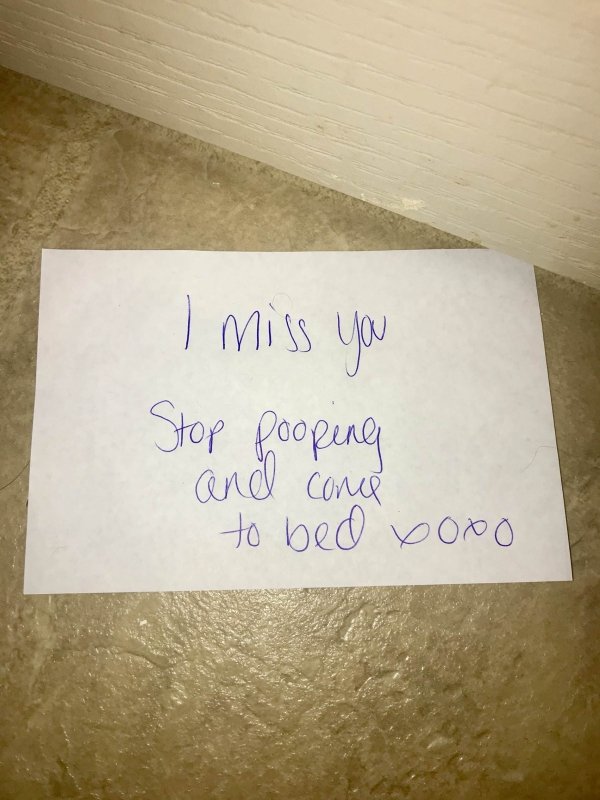 I miss you
Stop pooping
and come
to bed xoxo